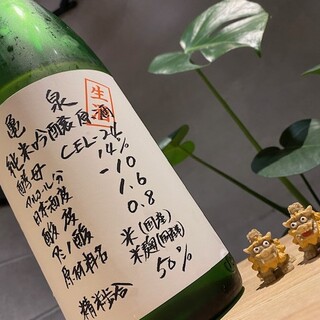 亀泉
生酒
純米吟醸原酒
酵母 CEL-24
アルコール分 14%
日本酒度 -10
酸度 1.6
アミノ酸 0.8
原材料名 米(国産)
米麹(国産米)
精米歩合 50%